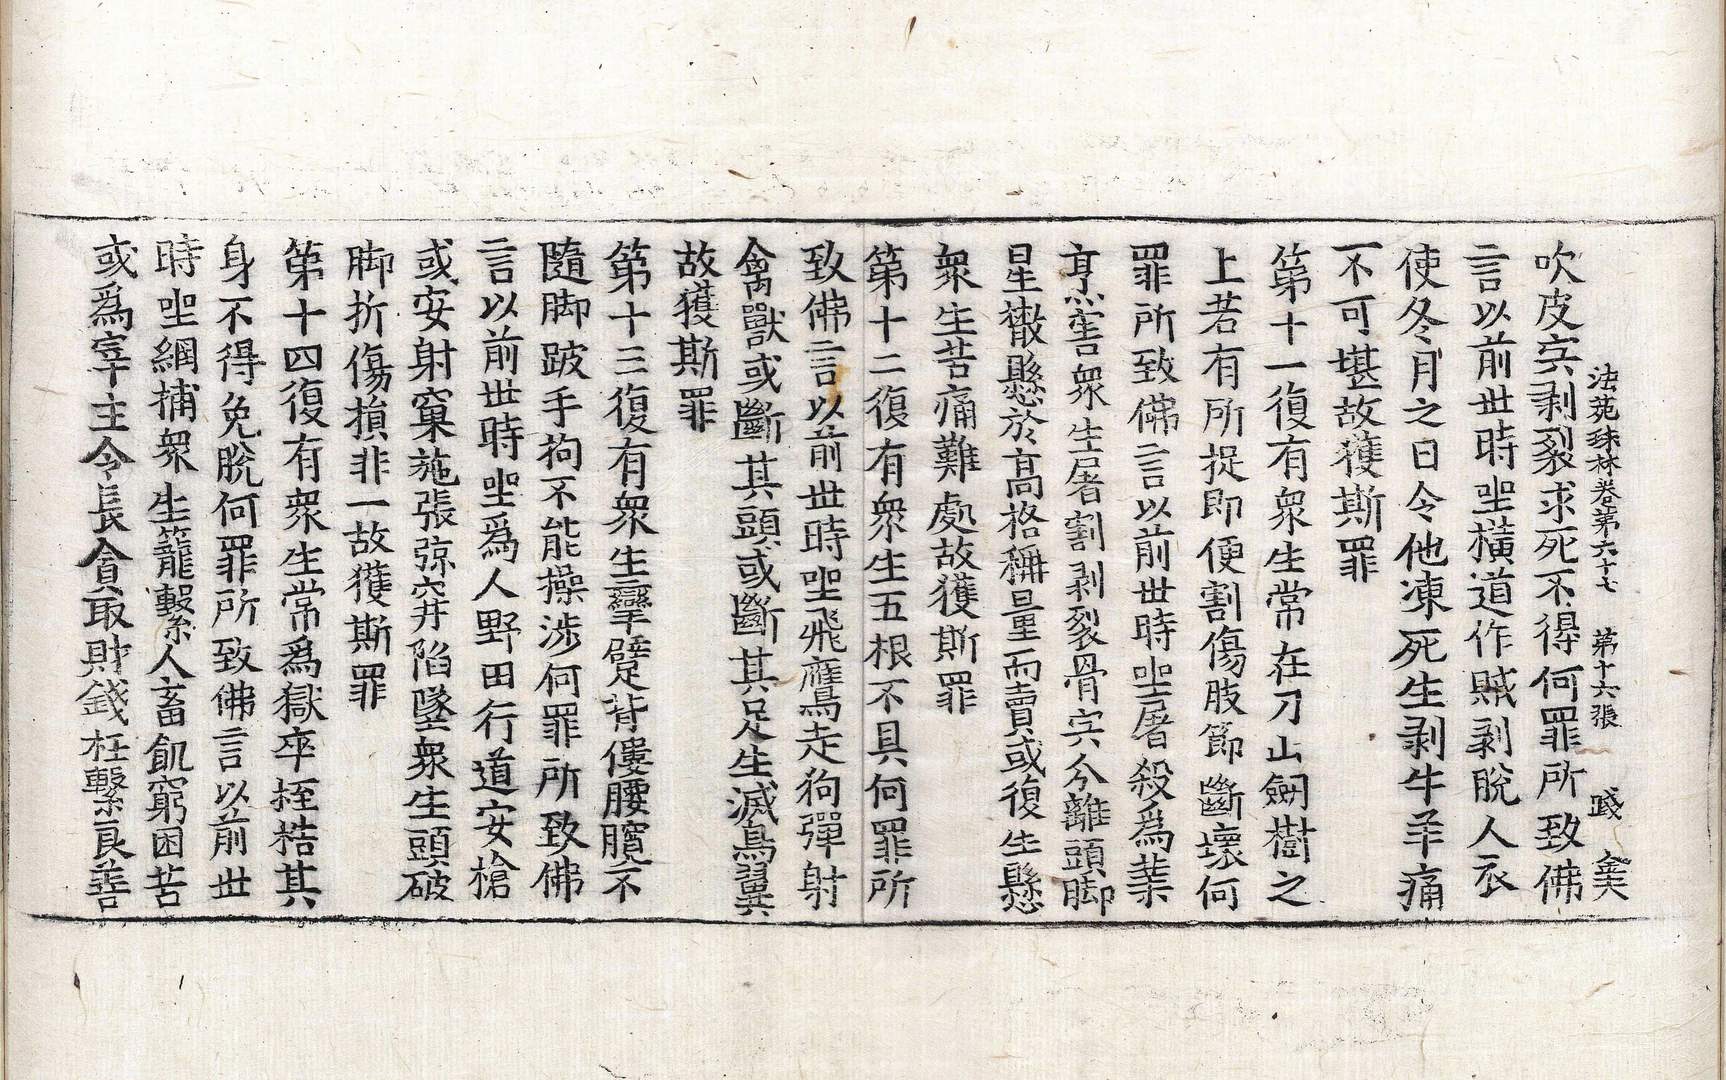 法苑珠林卷第六十七　第十六張　踐
吹皮宍剥裂求死不得何罪所致佛
言以前世時坐橫道作賊剥脫人衣
使冬月之日令他凍死生剥牛羊痛
不可堪故獲斯罪
第十一復有衆生常在刀山劒樹之
上若有所捉即便割傷肢節斷壞何
罪所致佛言以前世時坐屠殺爲業
烹害衆生屠割剥裂骨宍分離頭脚
星㪚懸於高格稱量而賣或復生懸
衆生苦痛難處故獲斯罪
第十二復有衆生五根不具何罪所
致佛言以前世時坐飛鷹走狗彈射
禽獸或斷其頭或斷其足生滅鳥翼
故獲斯罪
第十三復有衆生攣躄背僂腰髖不
隨脚跛手拘不能操涉何罪所致佛
言以前世時坐爲人野田行道安槍
或安射窠施張弶穽陷墜衆生頭破
脚折傷損非一故獲斯罪
第十四復有衆生常爲獄卒桎梏其
身不得免脫何罪所致佛言以前世
時坐網捕衆生籠繫人畜飢窮困苦
或爲宰主令長貪取財錢枉繫良善